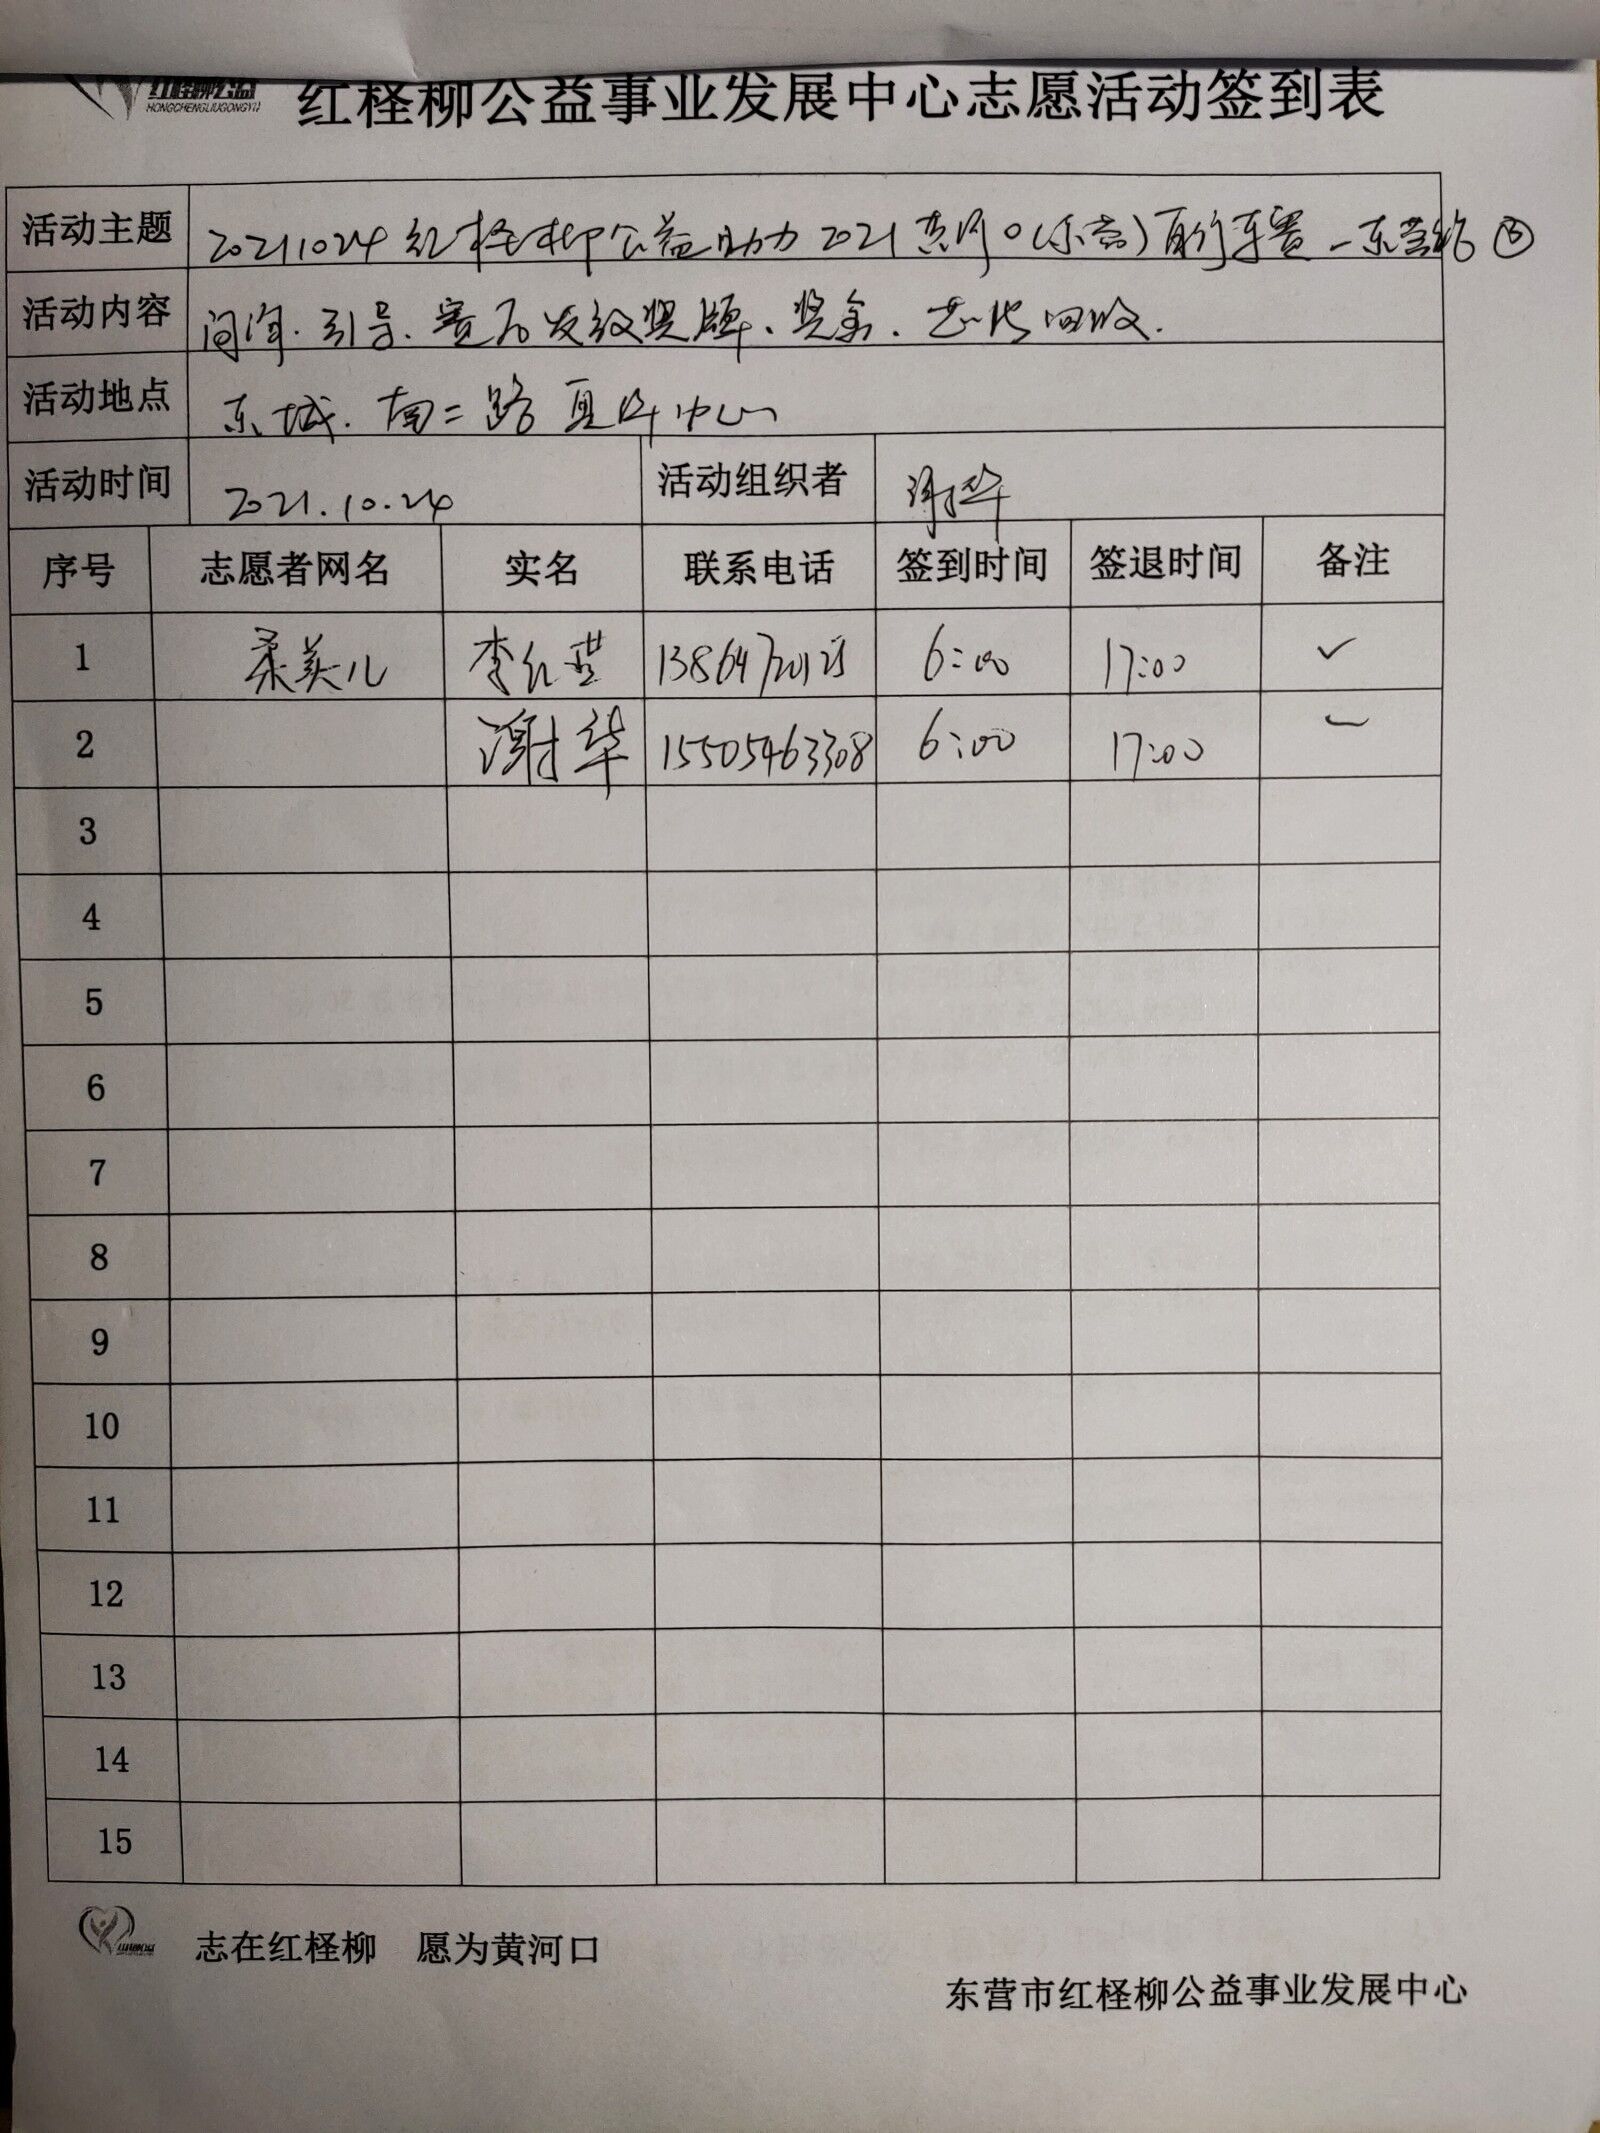 红柽柳公益
HONGCHENGLIUGONGYI
红柽柳公益事业发展中心志愿活动签到表
活动主题 20211024 红柽柳公益助力 2021 黄河口(东营)自行车赛－东营站 ③
活动内容 问询、引导、赛后发放奖牌、奖金、回收.
活动地点 东城.南二路 中心
活动时间 2021.10.24 活动组织者 谢华
序号 志愿者网名 实名 联系电话 签到时间 签退时间 备注
1 柔美儿 李红 6:00 17:00 ✓
2 谢华 15505463308 6:00 17:00
3
4
5
6
7
8
9
10
11
12
13
14
15
志在红柽柳 愿为黄河口
东营市红柽柳公益事业发展中心